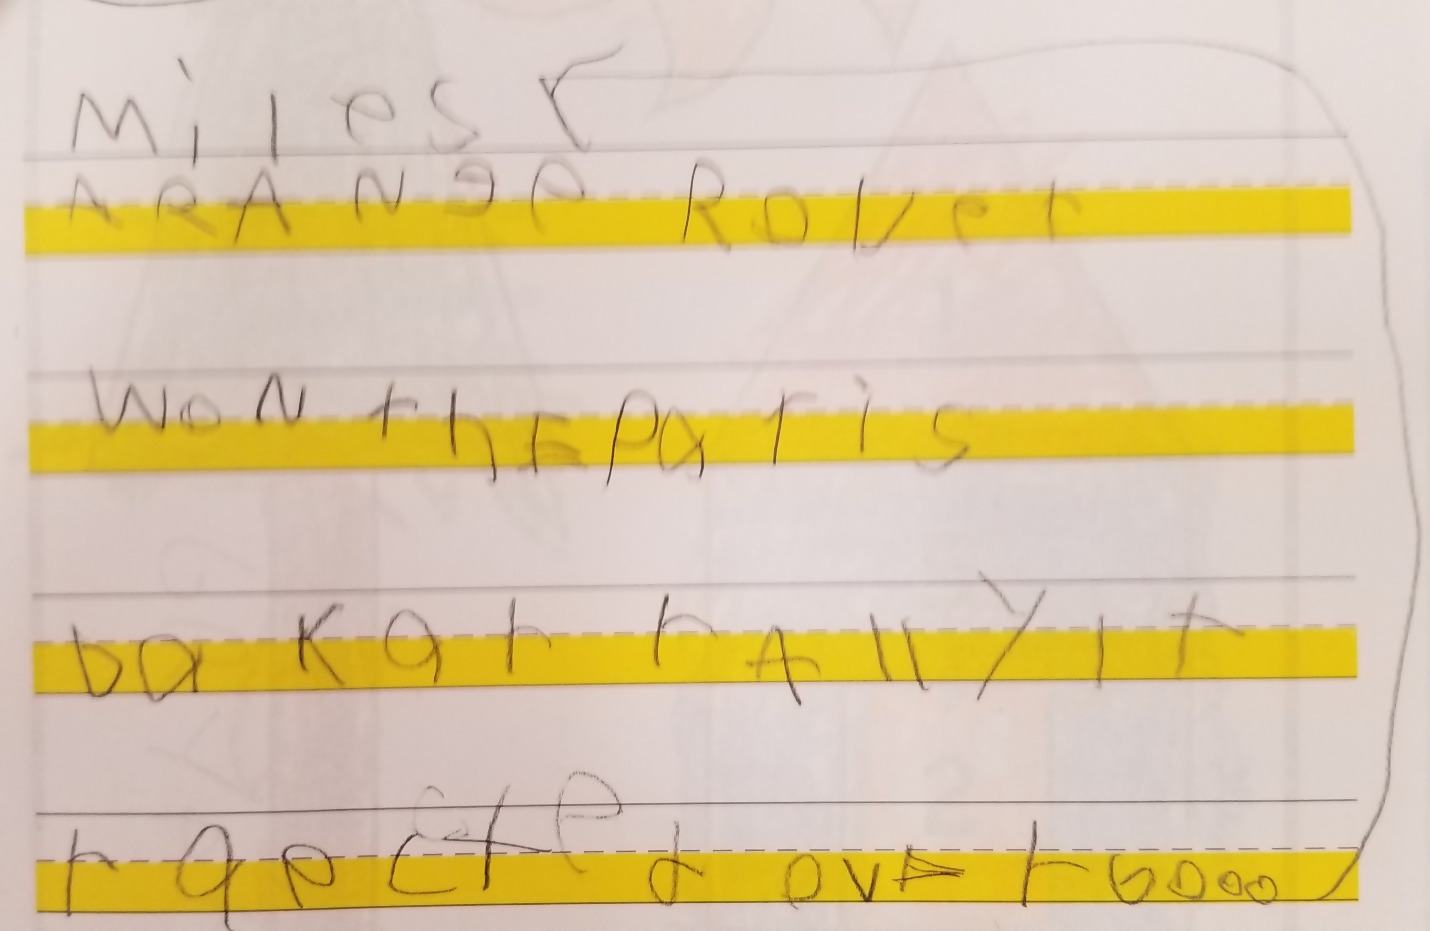 Miles
A RANGe Rover
WoN the Paris
bakar rAllYit
racete d over 6000